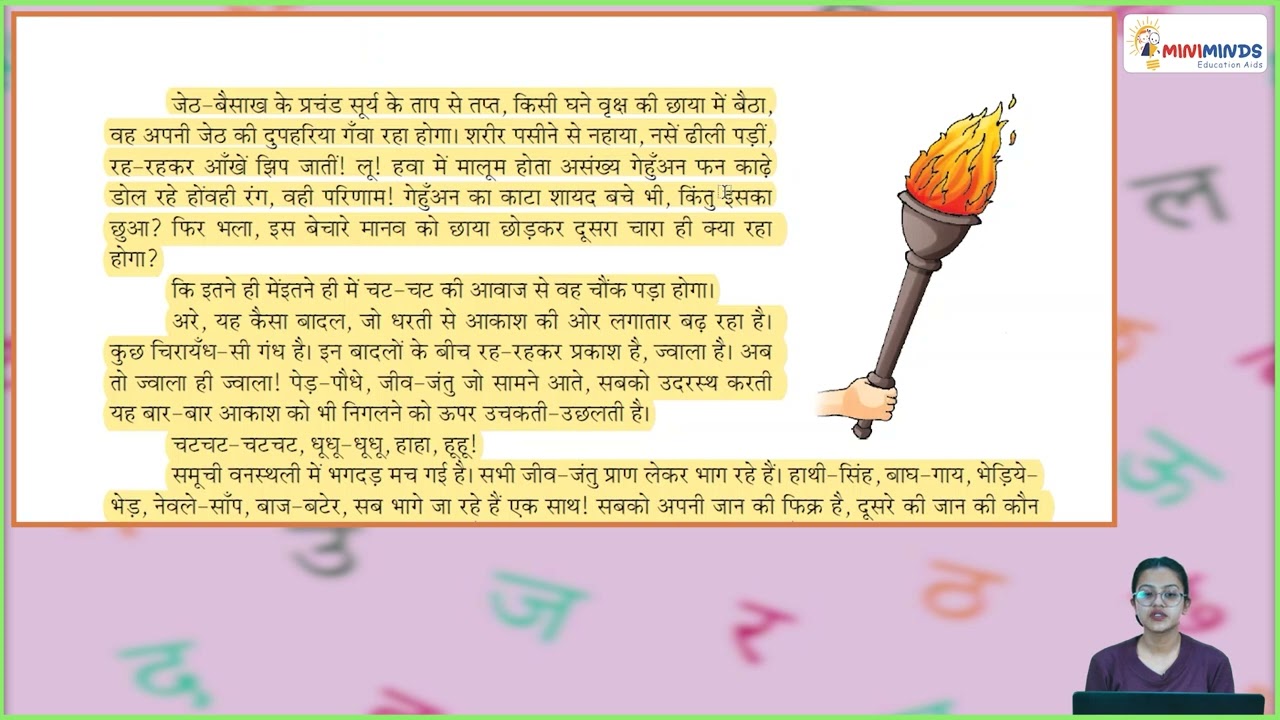 जेठ-बैसाख के प्रचंड सूर्य के ताप से तप्त, किसी घने वृक्ष की छाया में बैठा,
वह अपनी जेठ की दुपहरिया गँवा रहा होगा। शरीर पसीने से नहाया, नसें ढीली पड़ीं,
रह-रहकर आँखें झिप जातीं! लू! हवा में मालूम होता असंख्य गेहुँअन फन काढ़े
डोल रहे होंवही रंग, वही परिणाम! गेहुँअन का काटा शायद बचे भी, किंतु इसका
छुआ? फिर भला, इस बेचारे मानव को छाया छोड़कर दूसरा चारा ही क्या रहा
होगा?
कि इतने ही मेंइतने ही में चट-चट की आवाज से वह चौंक पड़ा होगा।
अरे, यह कैसा बादल, जो धरती से आकाश की ओर लगातार बढ़ रहा है।
कुछ चिरायँध-सी गंध है। इन बादलों के बीच रह-रहकर प्रकाश है, ज्वाला है। अब
तो ज्वाला ही ज्वाला! पेड़-पौधे, जीव-जंतु जो सामने आते, सबको उदरस्थ करती
यह बार-बार आकाश को भी निगलने को ऊपर उचकती-उछलती है।
चटचट-चटचट, धूधू-धूधू, हाहा, हूहू!
समूची वनस्थली में भगदड़ मच गई है। सभी जीव-जंतु प्राण लेकर भाग रहे हैं। हाथी-सिंह, बाघ-गाय, भेड़िये-
भेड़, नेवले-साँप, बाज-बटेर, सब भागे जा रहे हैं एक साथ! सबको अपनी जान की फिक्र है, दूसरे की जान की कौन
MINIMINDS
Education Aids
ल
ऊ
ठ
ज
र